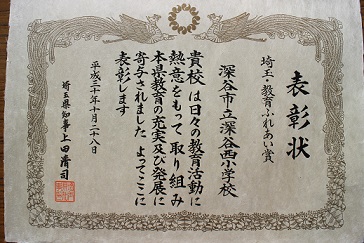 表彰状
埼玉・教育ふれあい賞
深谷市立深谷西小学校
貴校は日々の教育活動に
熱意をもって取り組み
本県教育の充実及び発展に
寄与されました よってここに
表彰します
平成三十年十月二十八日
埼玉県知事 上田清司